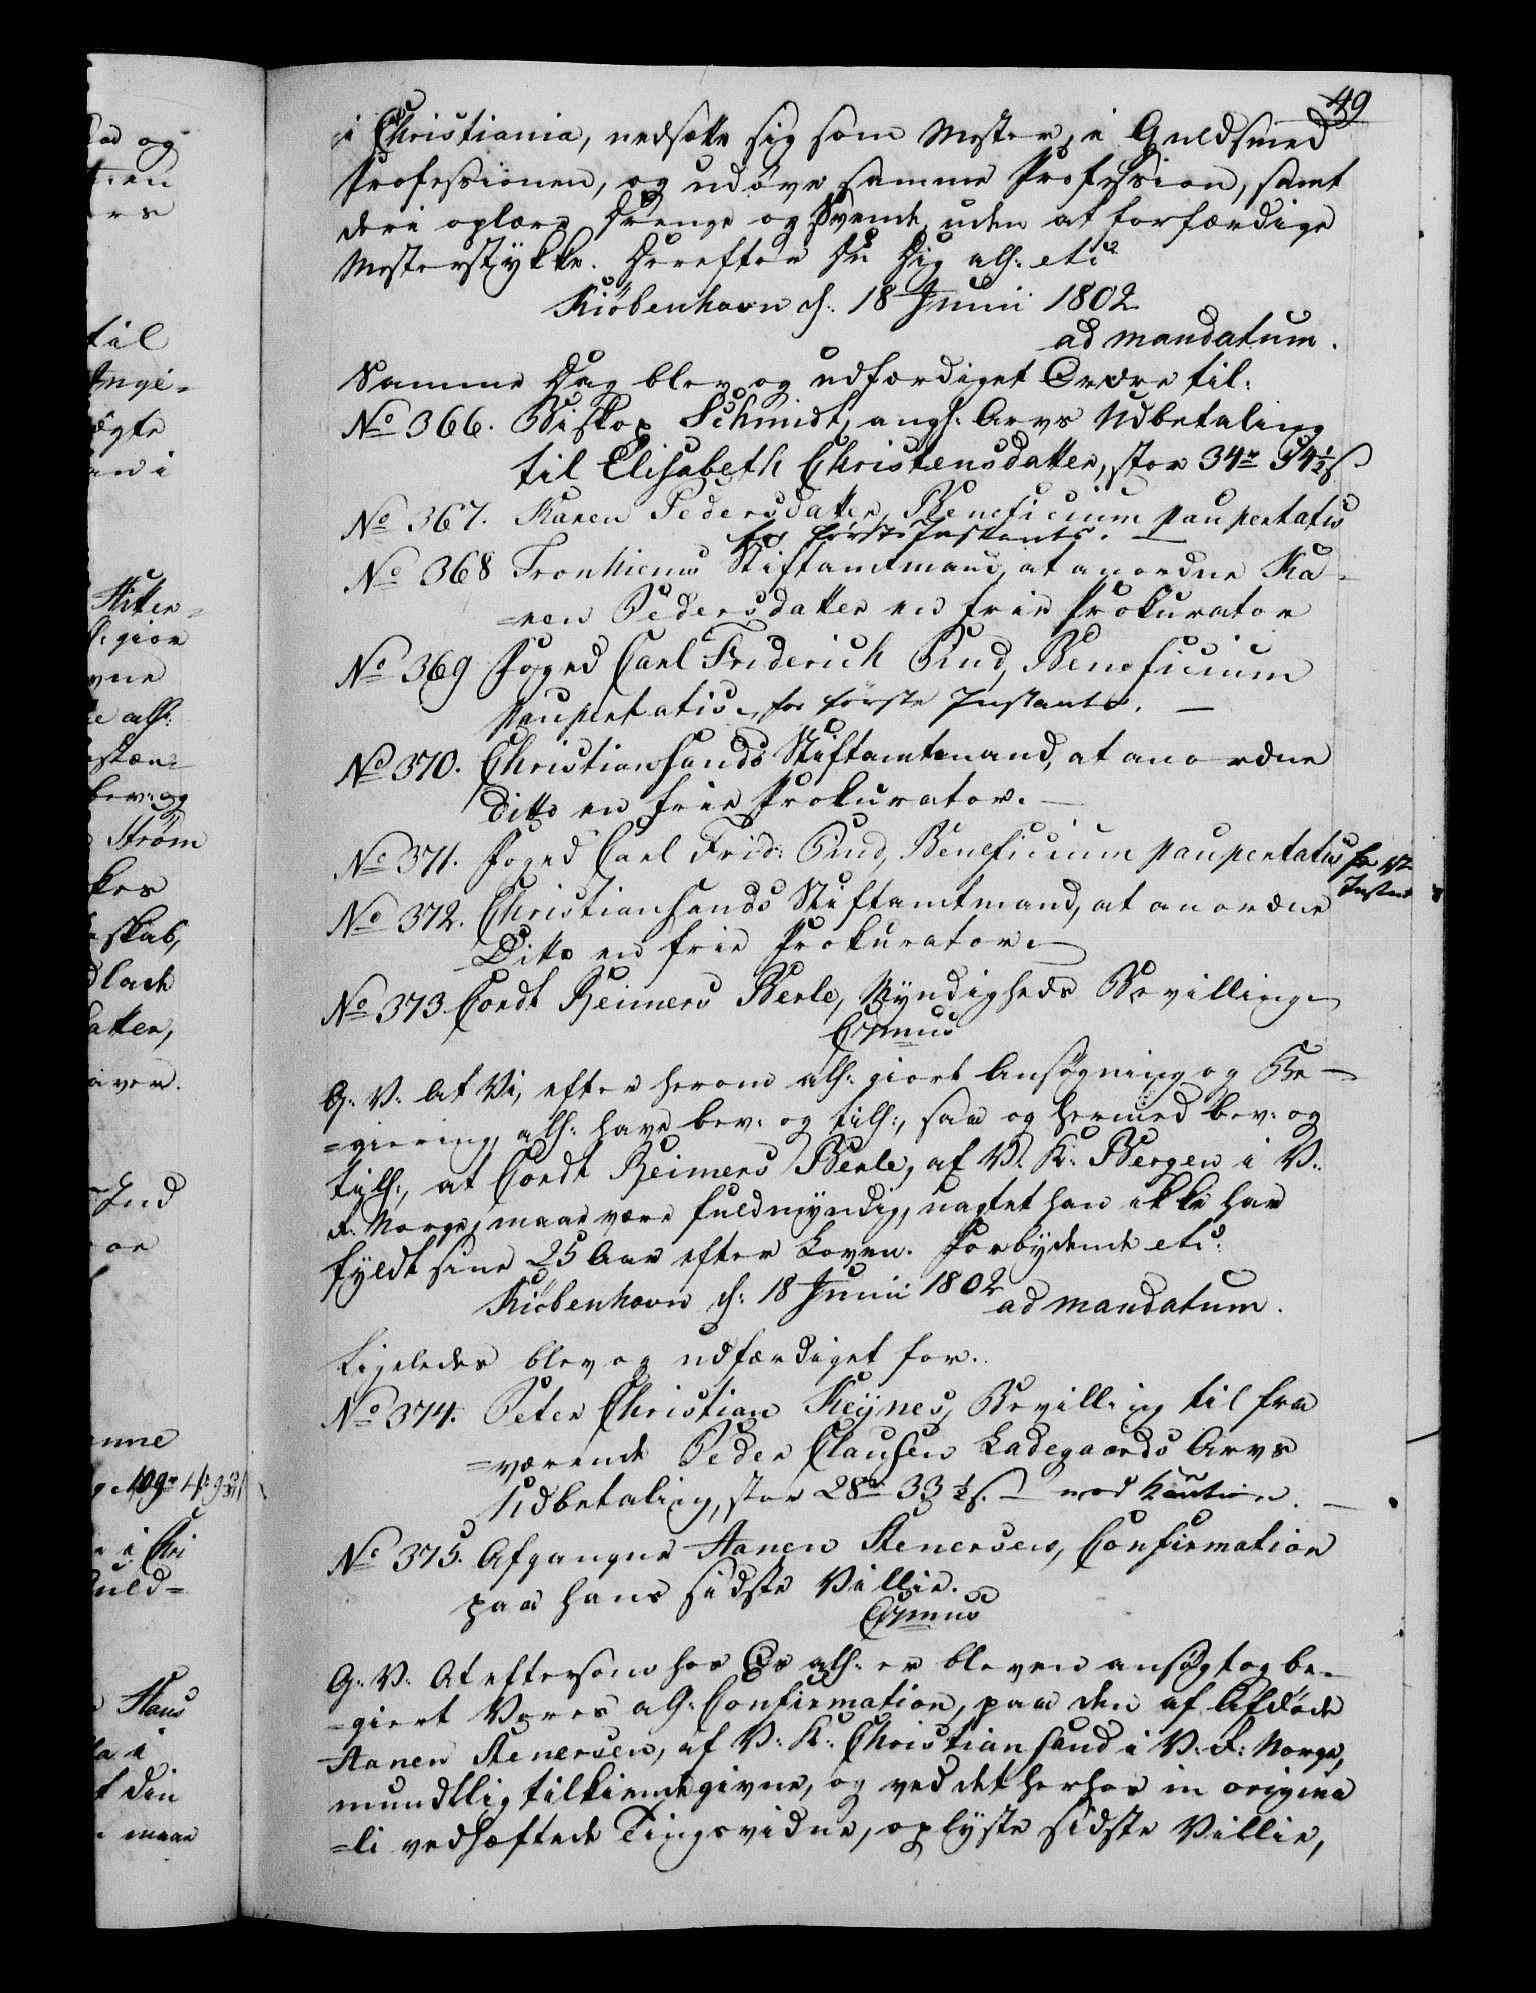 49
i Christiania, nedsætte sig som Mester i Guldsmed
Professionen, og udøve samme Profession, samt
deri oplære Drenge og Svende, uden at forfærdige
Mesterstykke. Derefter Du Dig alh: etc.
Kiøbenhavn d. 18 Junii 1802
ad mandatum.
Samme Dag blev og udfærdiget Ordre til:
No 366. Biskop Schmidt, angl: Arvs Udbetaling
til Elisabeth Christensdatter, stor 34 rd
No 367. Karen Pedersdatter, Beneficium paupertatis
for første Instants.
No 368 Tronhiems Stiftamtmand, at anordne Ka-
=ren Pedersdatter en frie Prokurator
No 369 Foged Carl Friderich Pind, Beneficium
paupertatis, for første Instants. —
No 370. Christiansands Stiftamtmand, at anordne
Ditto en frie Prokurator. —
No 371. Foged Carl Frid: Pind, Beneficium paupertatis for
Instants
No 372. Christiansands Stiftamtmand, at anordne
Ditto en frie Prokurator.
No 373 Cordt Reimers Berle, Myndigheds Bevilling
G: V: At Vi, efter herom alh: giort Ansøgning og Be-
=giering, alh: have bev: og tilh:, saa og hermed bev: og
tilh:, at Cordt Reimers Berle, af V: K: Bergen i V:
R: Norge, maae være fuldmyndig, uagtet han ikke har
fyldt sine 25 Aar efter Loven. Forbydende etc:
Kiøbenhavn d: 18 Junii 1802
ad mandatum.
Ligeledes blev og udfærdiget for:
No 374. Peter Christian Keynes, Bevilling til fra
=værende Peder Clausen Ladegaards Arvs
Udbetaling, stor 28 rd 33 ½ s. — mod Kaution. —
No 375. Afgangne Aanen Stenersens, Confirmation
paa hans sidste Villie.
G: V: At eftersom hos Os alh: er bleven ansøgt og be-
=giert Vores alh: Confirmation, paa den af Afdøde
Aanen Stenersen, af V: K: Christiansand i V: R: Norge,
mundtlig tilkiendegivne, og ved det herhos in origina
=li vedhæftede Tingsvidne, oplyste sidste Villie,